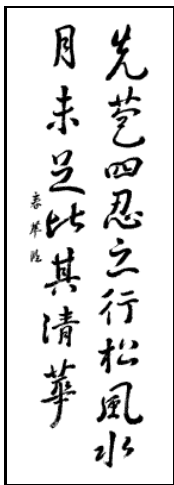 先苞四忍之行松風水
月未足比其清華